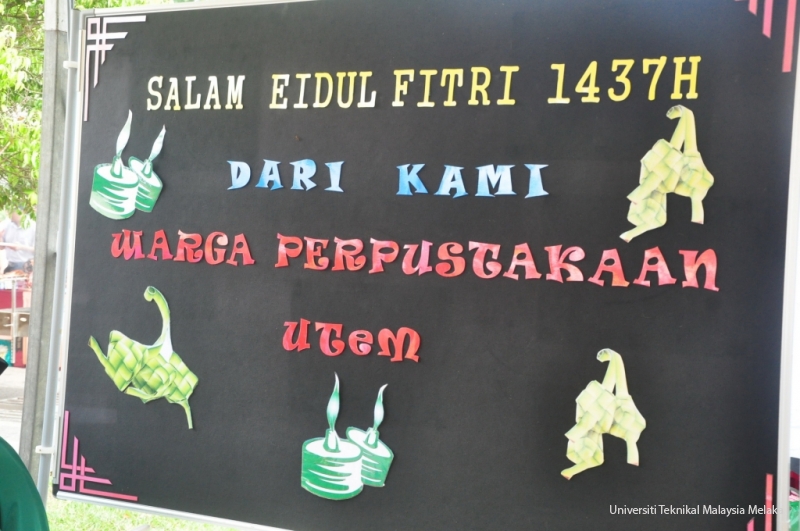 SALAM EIDUL FITRI 1437H
DARI KAMI
WARGA PERPUSTAKAAN
UTeM
Universiti Teknikal Malaysia Melaka